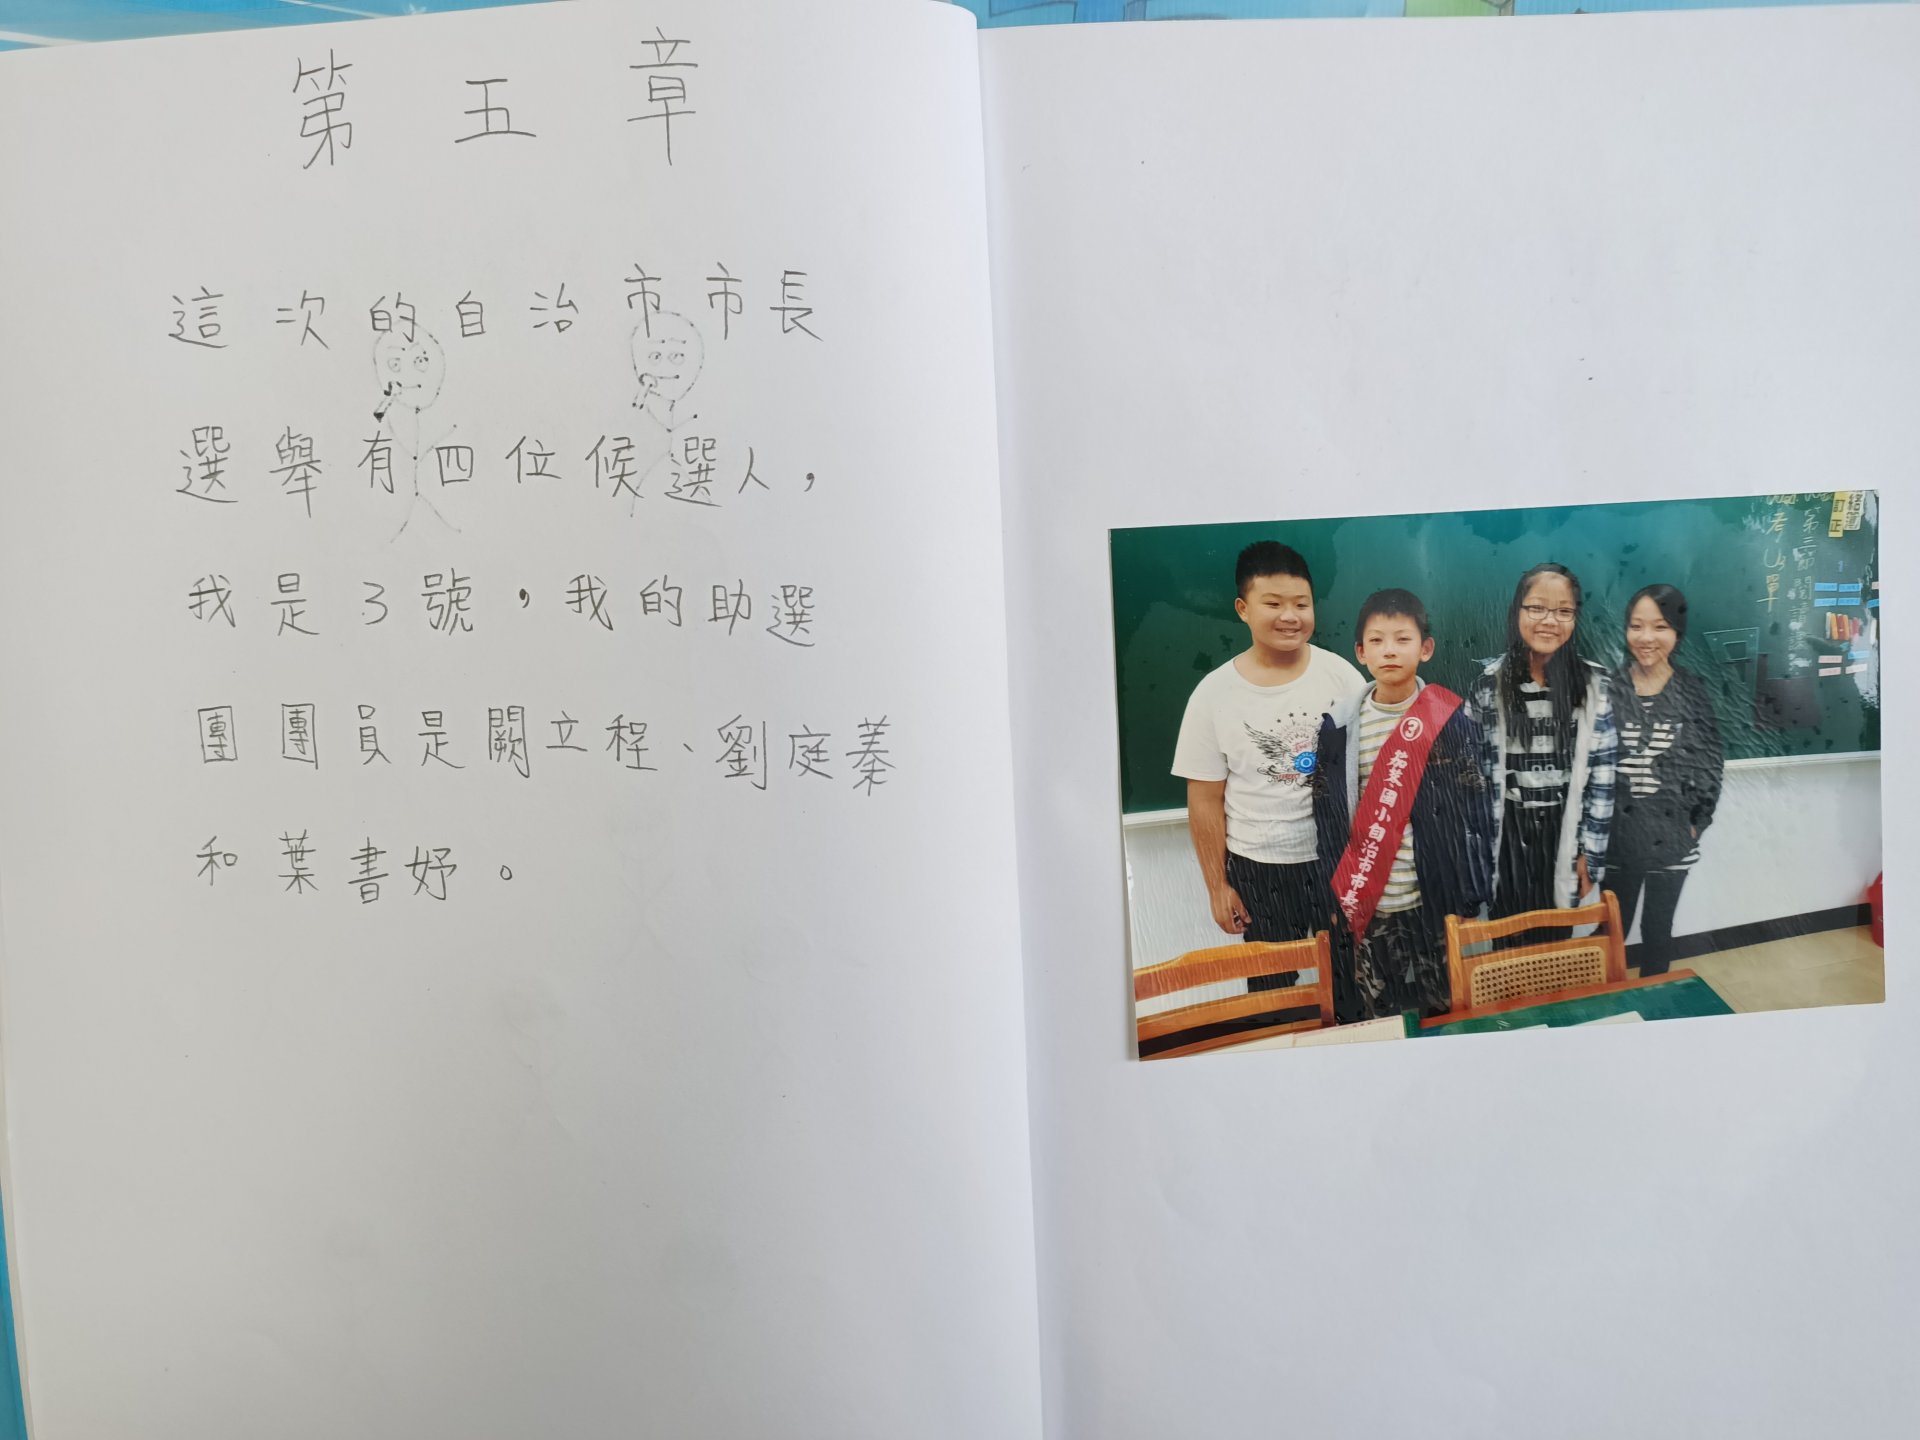 第五章
這次的自治市市長
選舉有四位候選人，
我是3號，我的助選
團團員是闕立程、劉庭蓁
和葉書妤。
③茄苳國小自治市市長
第三節閱讀課
訂正